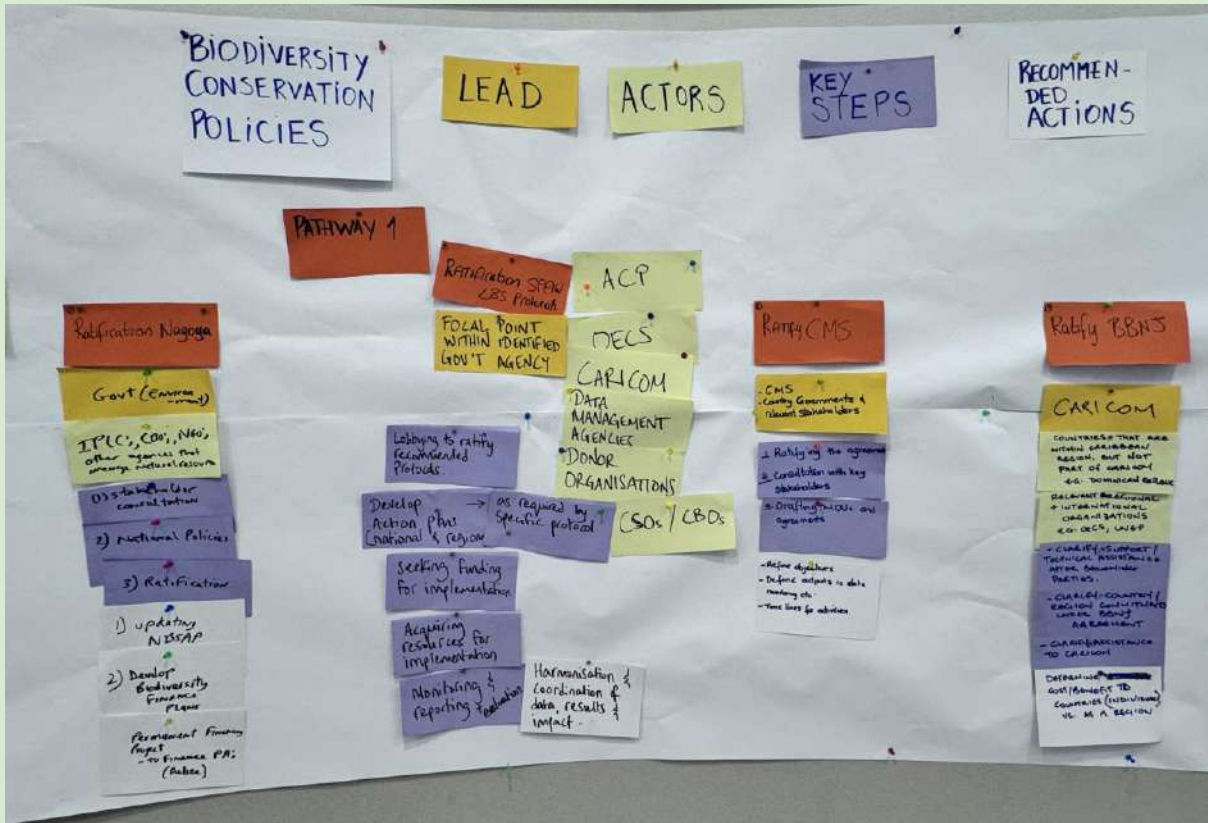 BIODIVERSITY
CONSERVATION
POLICIES
LEAD
ACTORS
KEY
STEPS
RECOMMEN-
DED
ACTIONS
PATHWAY 1
Ratification Nagoya
Govt (Environ
-ment)
IPLC's, CBO's, NGO's,
other agencies that
manage natural resource
1) Stakeholder
consultation
2) National Policies
3) Ratification
1) updating
NBSAP
2) Develop
Biodiversity
Finance
Plans
Permanent Financing
Project
- to Finance PA's
Ratification SPAW
LBS Protocols
FOCAL POINT
WITHIN IDENTIFIED
GOV'T AGENCY
ACP
OECS
CARICOM
DATA
MANAGEMENT
AGENCIES
DONOR
ORGANISATIONS
CSOs / CBOs
Lobbying to ratify
recommended
Protocols.
Develop →
Action plans
(national & region
as required by
specific protocol
Seeking funding
for implementation
Acquiring
resources for
implementation
Monitoring &
reporting + evaluation
Harmonisation &
coordination of
data, results &
impact.
Ratify CMS
- CMS
- Country Governments &
relevant stakeholders
1. Ratifying the agreement
2. Consultation with key
stakeholders
3. Drafting MOUs and
agreements
- Refine objectives
- Define outputs ie data
monitoring etc.
- Time lines for activities
Ratify BBNJ
CARICOM
COUNTRIES THAT ARE
WITHIN CARIBBEAN
REGION, BUT NOT
PART OF CARICOM
E.G. DOMINICAN REPUBLIC
RELEVANT REGIONAL
+ INTERNATIONAL
ORGANIZATIONS
E.G. OECS, UNEP
- CLARIFY SUPPORT/
TECHNICAL ASSISTANCE
AFTER BECOMING
PARTIES.
- CLARIFY COUNTRY/
REGION COMMITMENT
UNDER BBNJ
AGREEMENT
- CLARIFY ASSISTANCE
TO CARICOM
DETERMINE
COST/BENEFIT TO
COUNTRIES (INDIVIDUAL)
VS. AS A REGION